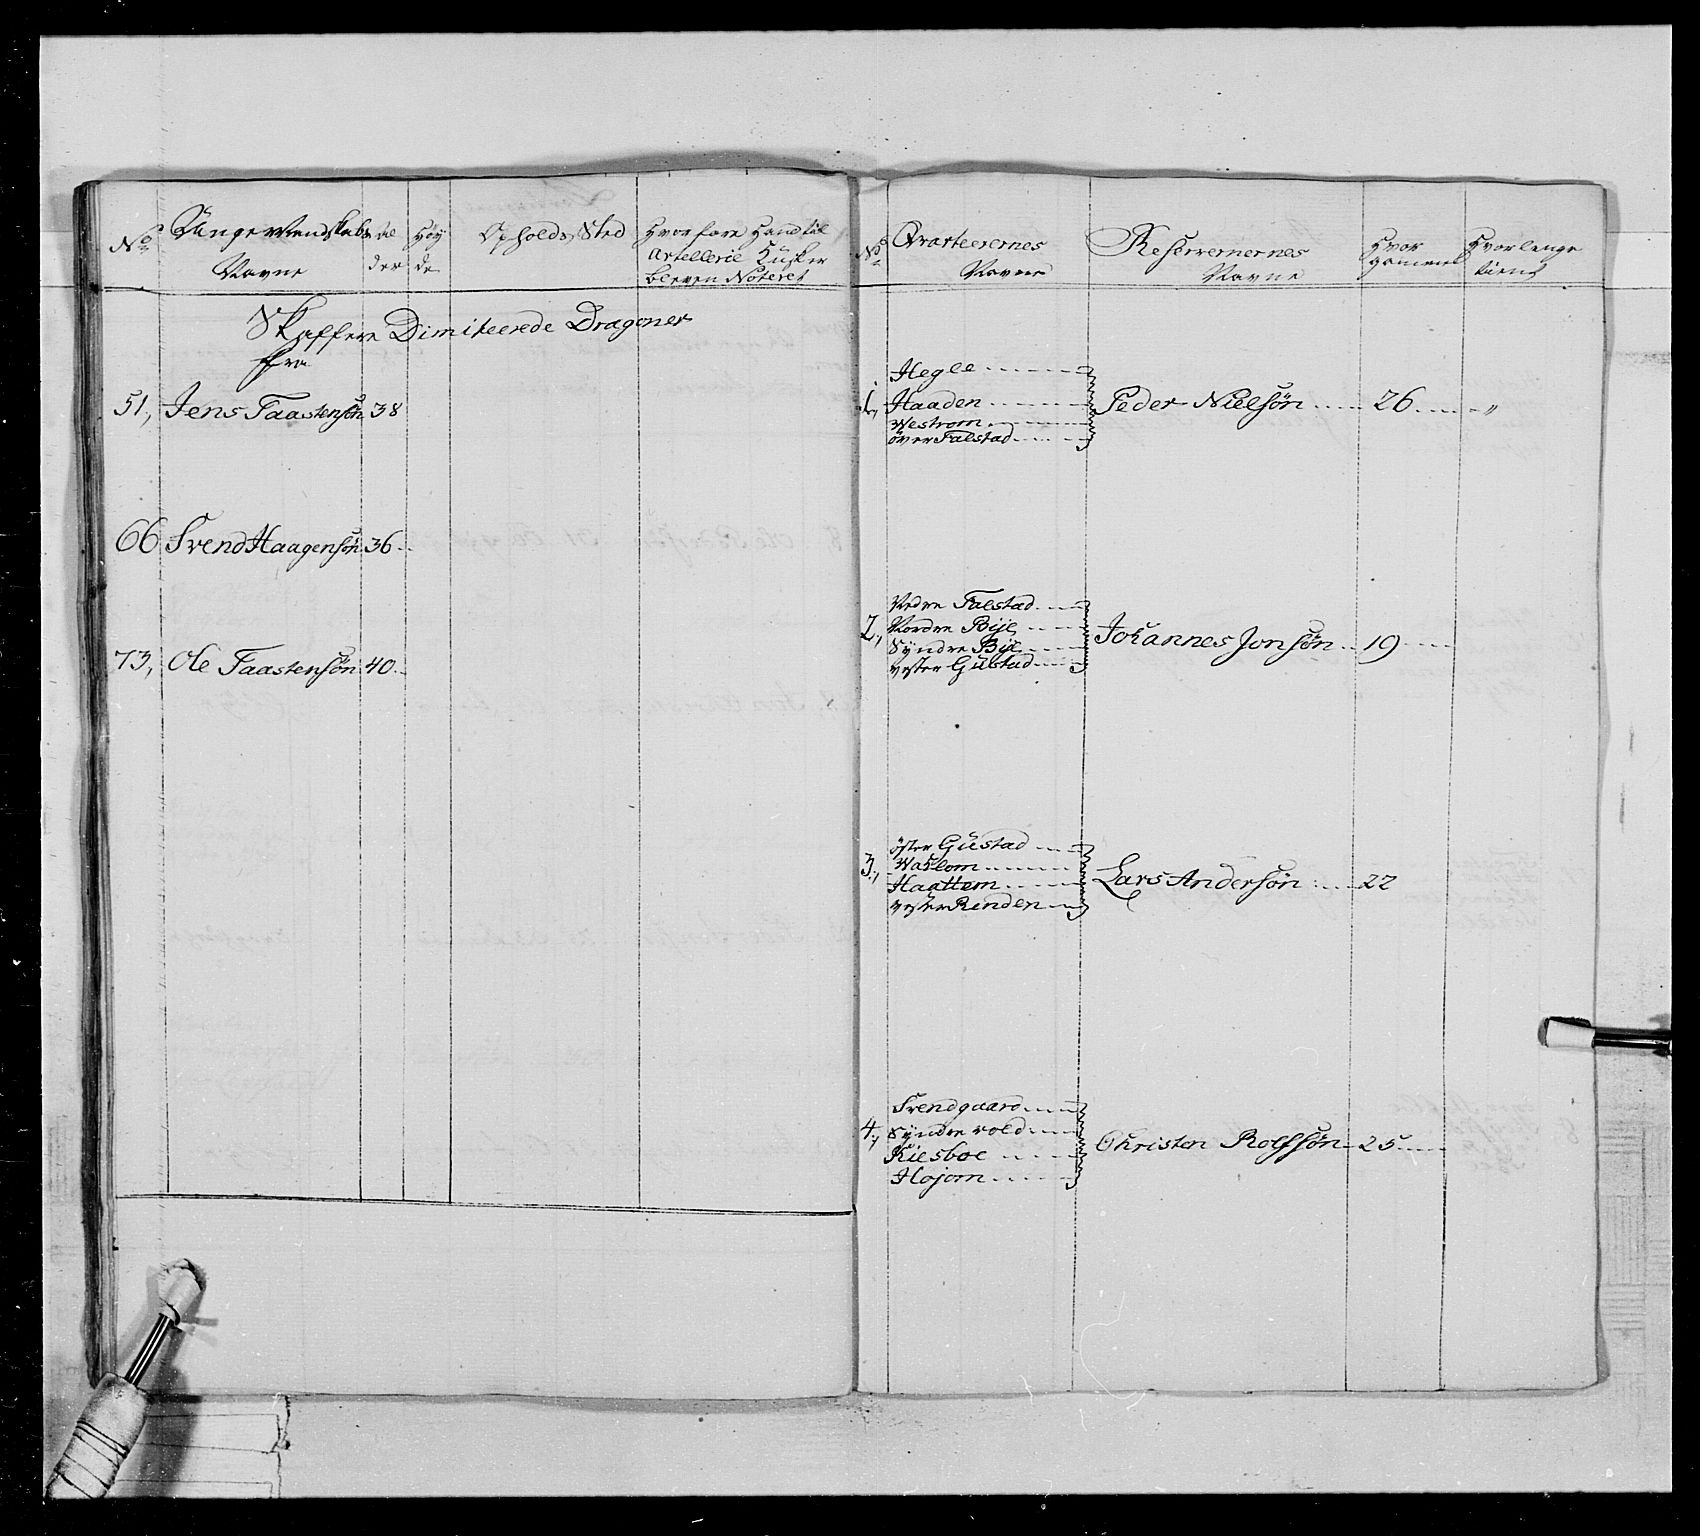 No Unge Mandskabs Navne | Alder | Høyde | Opholds Sted | Hvorfore Hand til Artellerie Kusk er bleven Noteret
Skaffere Dimiteerede Dragoner
fra
51, Jens Taastensøn 38
66 Svend Haagensøn 36
73, Ole Taastensøn 40
No Qvarteerernes Navne | Reserverernes Navne | Hvor gammel | Hvor lenge tient
1, Hegle
Haaden
Westrom
över Falstad
Peder Nielsøn 26 "
2, Nedre Falstad
Nordre Bye
Syndre Bye
vester Gustad
Johannes Jonsøn 19
3, öster Gustad
Haattem
vester Renden
Lars Andersøn 22
4, Svendgaard
Syndre vold
Kiesboe
Hojom
Christen Rolfsøn 25